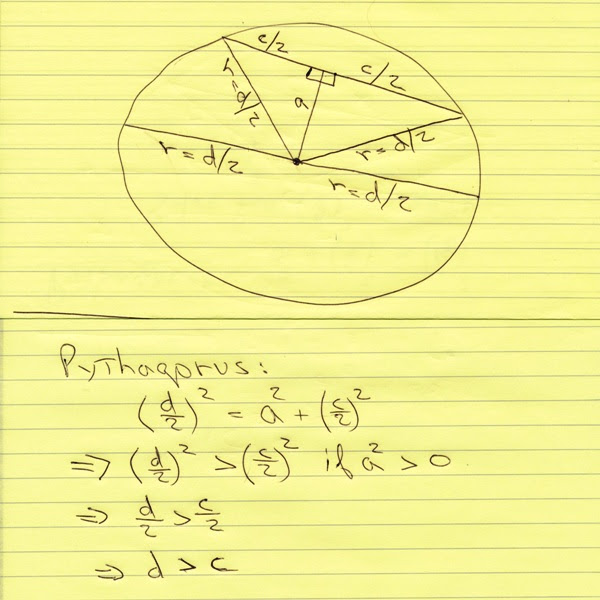 c/2
c/2
r = d/2
a
r = d/2
r = d/2
r = d/2
Pythagorus:
(d/2)² = a² + (c/2)²
⇒ (d/2)² > (c/2)² if a² > 0
⇒ d/2 > c/2
⇒ d > c